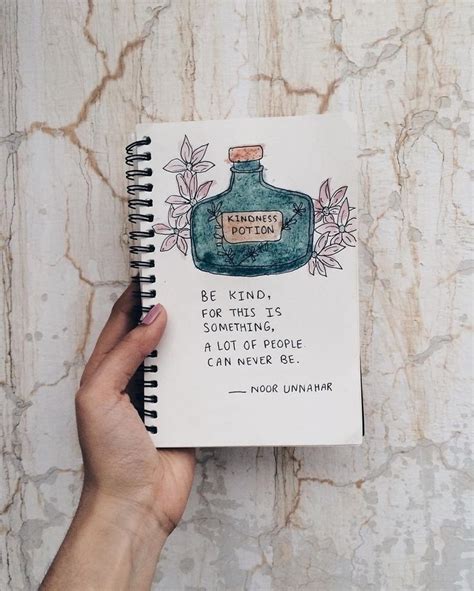 KINDNESS
POTION
BE KIND,
FOR THIS IS
SOMETHING,
A LOT OF PEOPLE
CAN NEVER BE.
— NOOR UNNAHAR